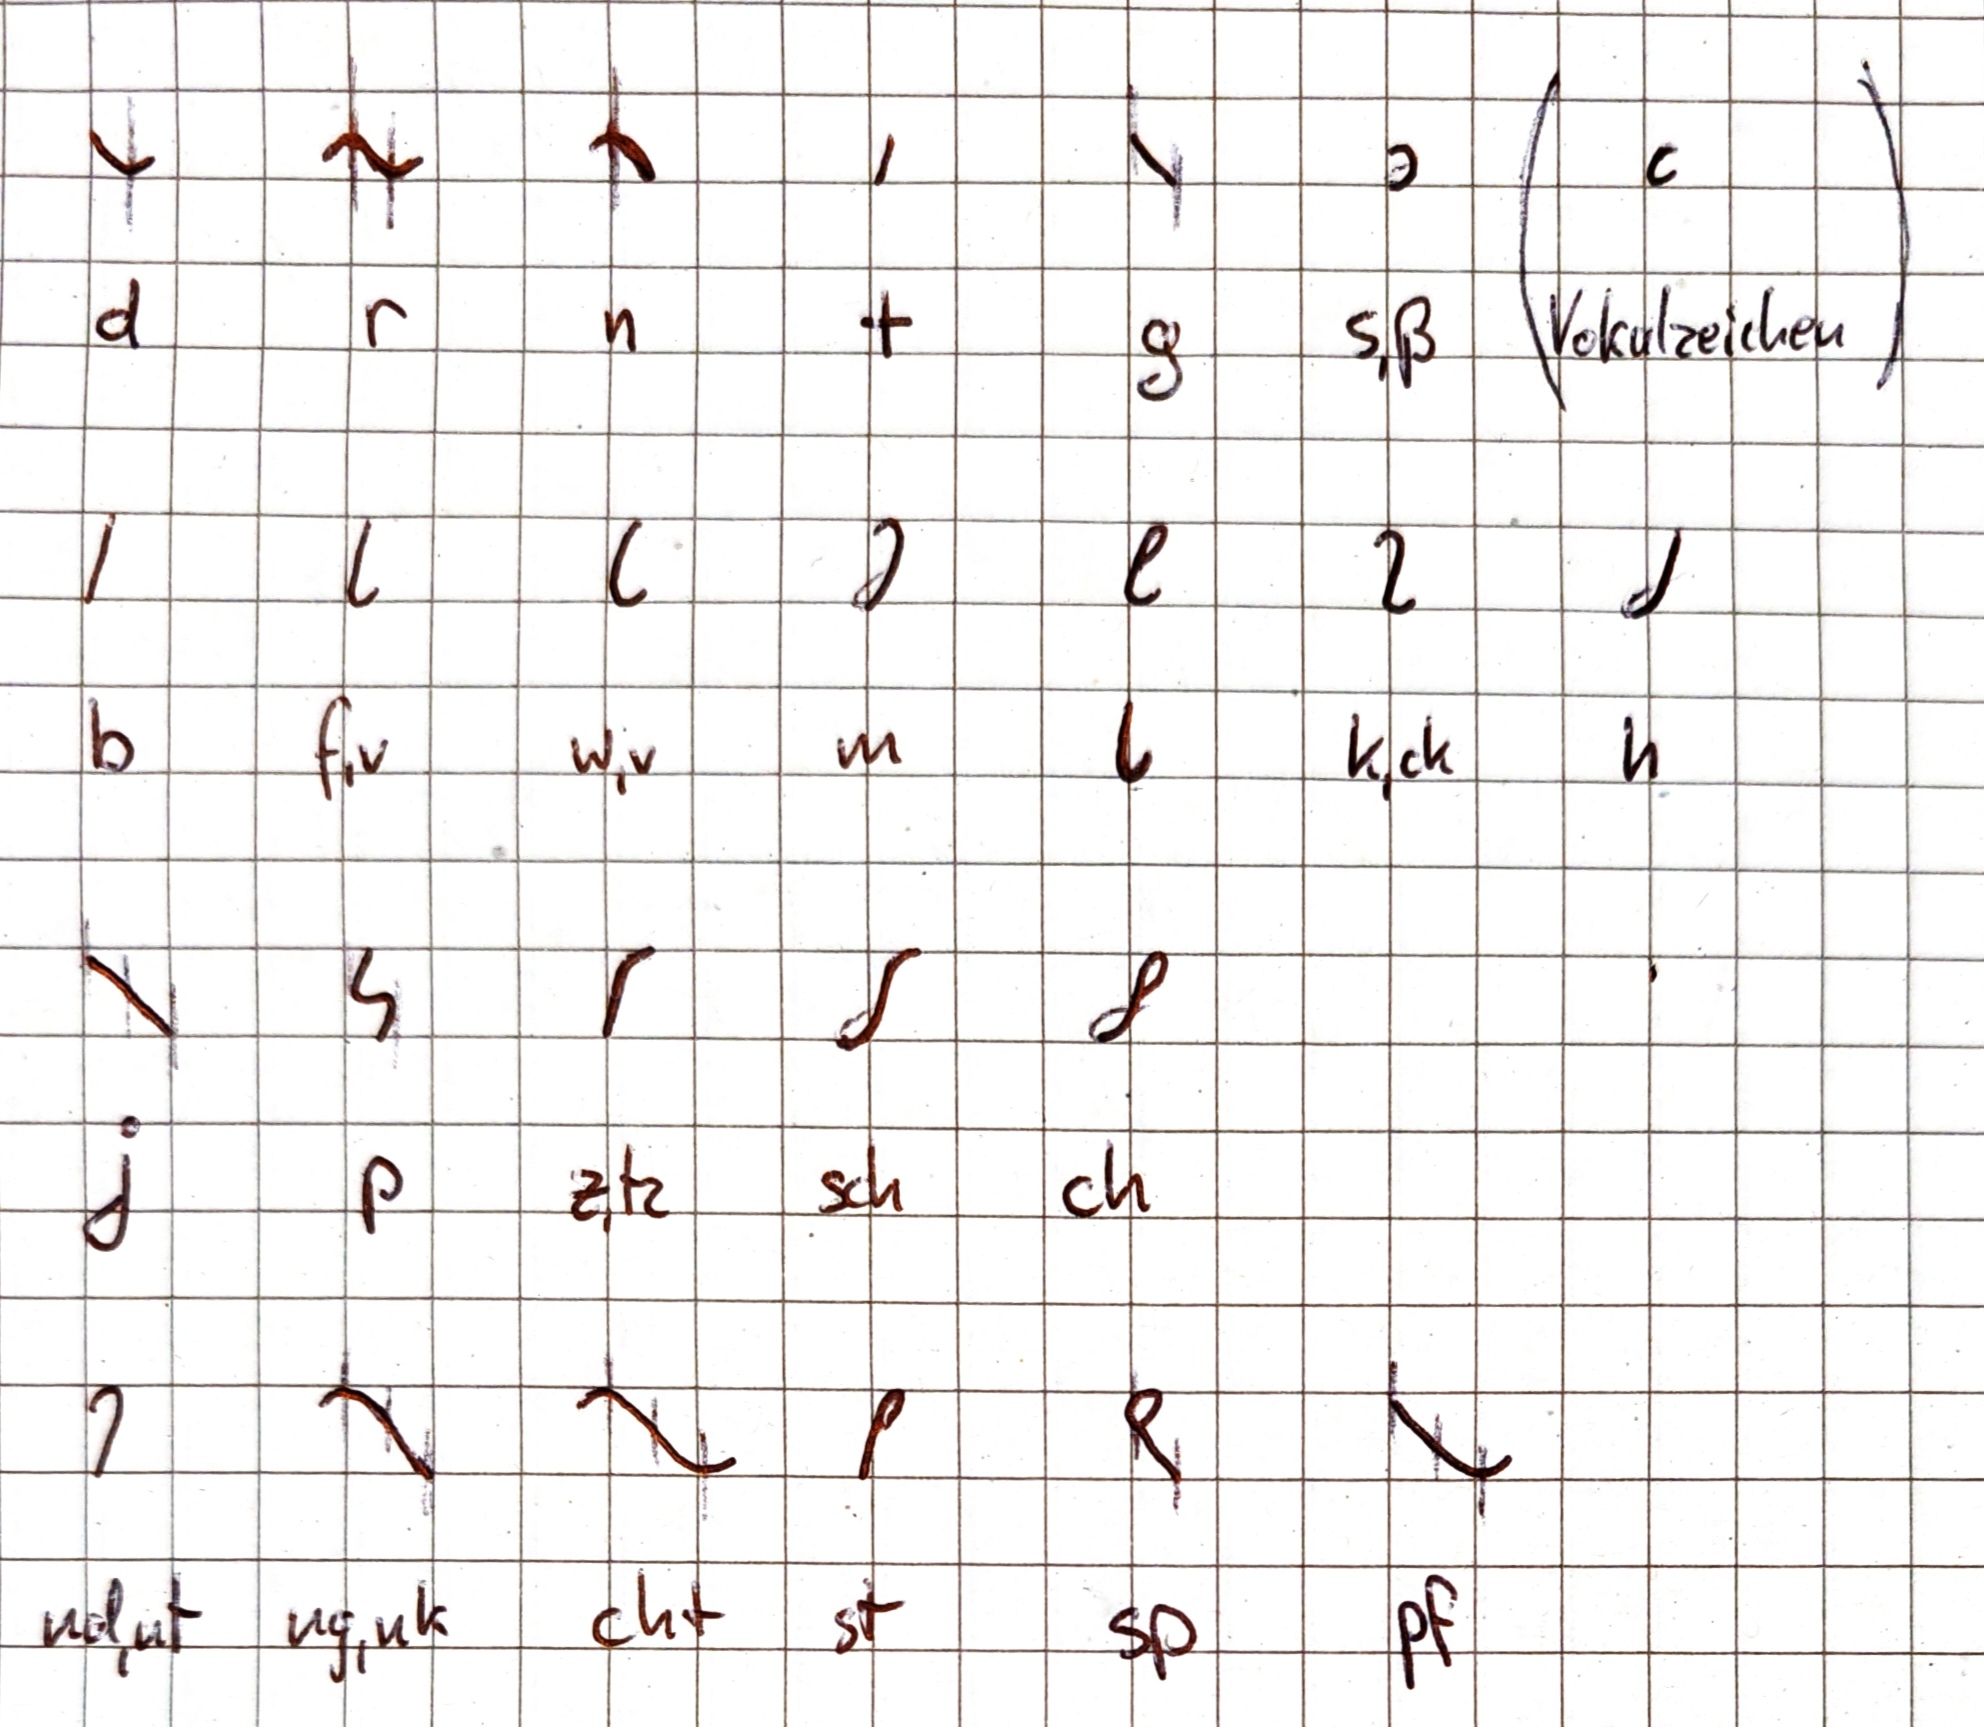 d r n t g s,ß (Vokalzeichen)
b f,v w,v m l k,ck h
j p z,tz sch ch
nd,nt ng,nk cht st sp pf